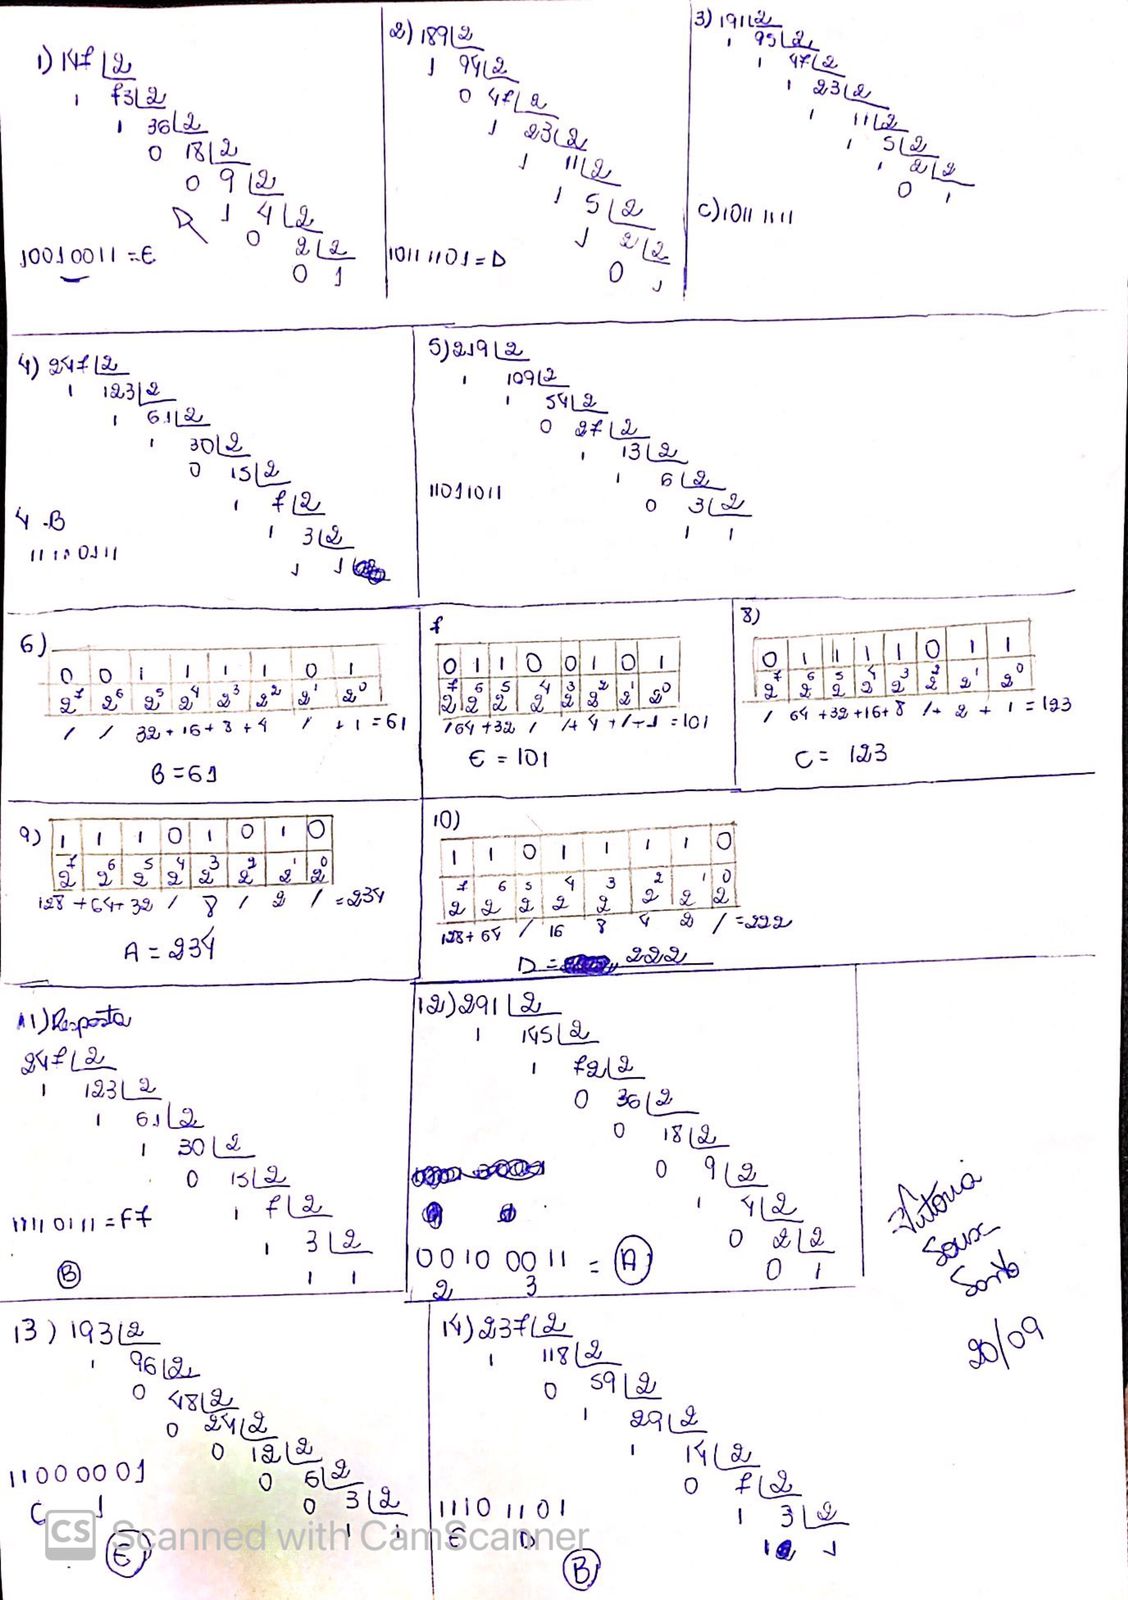 1) 147 2
1 73 2
1 36 2
0 18 2
0 9 2
1 4 2
0 2 2
0 1
10010011 = E
2) 189 2
1 94 2
0 47 2
1 23 2
1 11 2
1 5 2
1 2 2
0 1
10111101 = D
3) 191 2
1 95 2
1 47 2
1 23 2
1 11 2
1 5 2
1 2 2
0 1
C) 1011 1111
4) 247 2
1 123 2
1 61 2
1 30 2
0 15 2
1 7 2
1 3 2
1 1
4 - B
11110111
5) 219 2
1 109 2
1 54 2
0 27 2
1 13 2
1 6 2
0 3 2
1 1
11011011
6)
0 0 1 1 1 1 0 1
2⁷ 2⁶ 2⁵ 2⁴ 2³ 2² 2¹ 2⁰
/ / 32 + 16 + 8 + 4 / + 1 = 61
B = 61
7
0 1 1 0 0 1 0 1
2⁷ 2⁶ 2⁵ 2⁴ 2³ 2² 2¹ 2⁰
/ 64 + 32 / / + 4 + / + 1 = 101
E = 101
8)
0 1 1 1 1 0 1 1
2⁷ 2⁶ 2⁵ 2⁴ 2³ 2² 2¹ 2⁰
/ 64 + 32 + 16 + 8 / + 2 + 1 = 123
C = 123
9)
1 1 1 0 1 0 1 0
2⁷ 2⁶ 2⁵ 2⁴ 2³ 2² 2¹ 2⁰
128 + 64 + 32 / 8 / 2 / = 234
A = 234
10)
1 1 0 1 1 1 1 0
2⁷ 2⁶ 2⁵ 2⁴ 2³ 2² 2¹ 2⁰
128 + 64 / 16 8 4 2 / = 222
D = 222
11) Resposta
247 2
1 123 2
1 61 2
1 30 2
0 15 2
1 7 2
1 3 2
1 1
11110111 = F7
B
12) 291 2
1 145 2
1 72 2
0 36 2
0 18 2
0 9 2
1 4 2
0 2 2
0 1
0010 0011 = A
2 3
Vitoria
Sousa
Santos
20/09
13) 193 2
1 96 2
0 48 2
0 24 2
0 12 2
0 6 2
0 3 2
1 1
11000001
C 1
E
14) 237 2
1 118 2
0 59 2
1 29 2
1 14 2
0 7 2
1 3 2
1 1
1110 1101
E D
B
CS Scanned with CamScanner